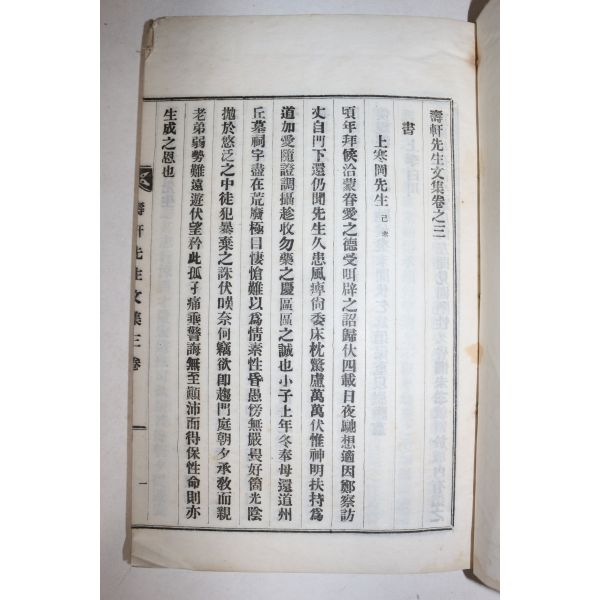 壽軒先生文集卷之三
書
上寒岡先生 己未
頃年拜候洽蒙眷愛之德受咡辟之詔歸伏四載日夜馳想適因鄭察訪
丈自門下還仍聞先生久患風痺尙委床枕驚慮萬萬伏惟神明扶持爲
道加愛隨證調攝趁收勿藥之慶區區之誠也小子上年冬奉母還道州
丘墓祠宇盡在荒廢極目悽愴難以爲情素性昏愚傍無嚴畏好箇光陰
抛於悠泛之中徒犯暴棄之誅伏嘆奈何竊欲卽趨門庭朝夕承敎而親
老弟弱勢難遠遊伏望矜此孤孑痛棄警誨無至顚沛而得保性命則亦
生成之恩也
壽軒先生文集三卷
一